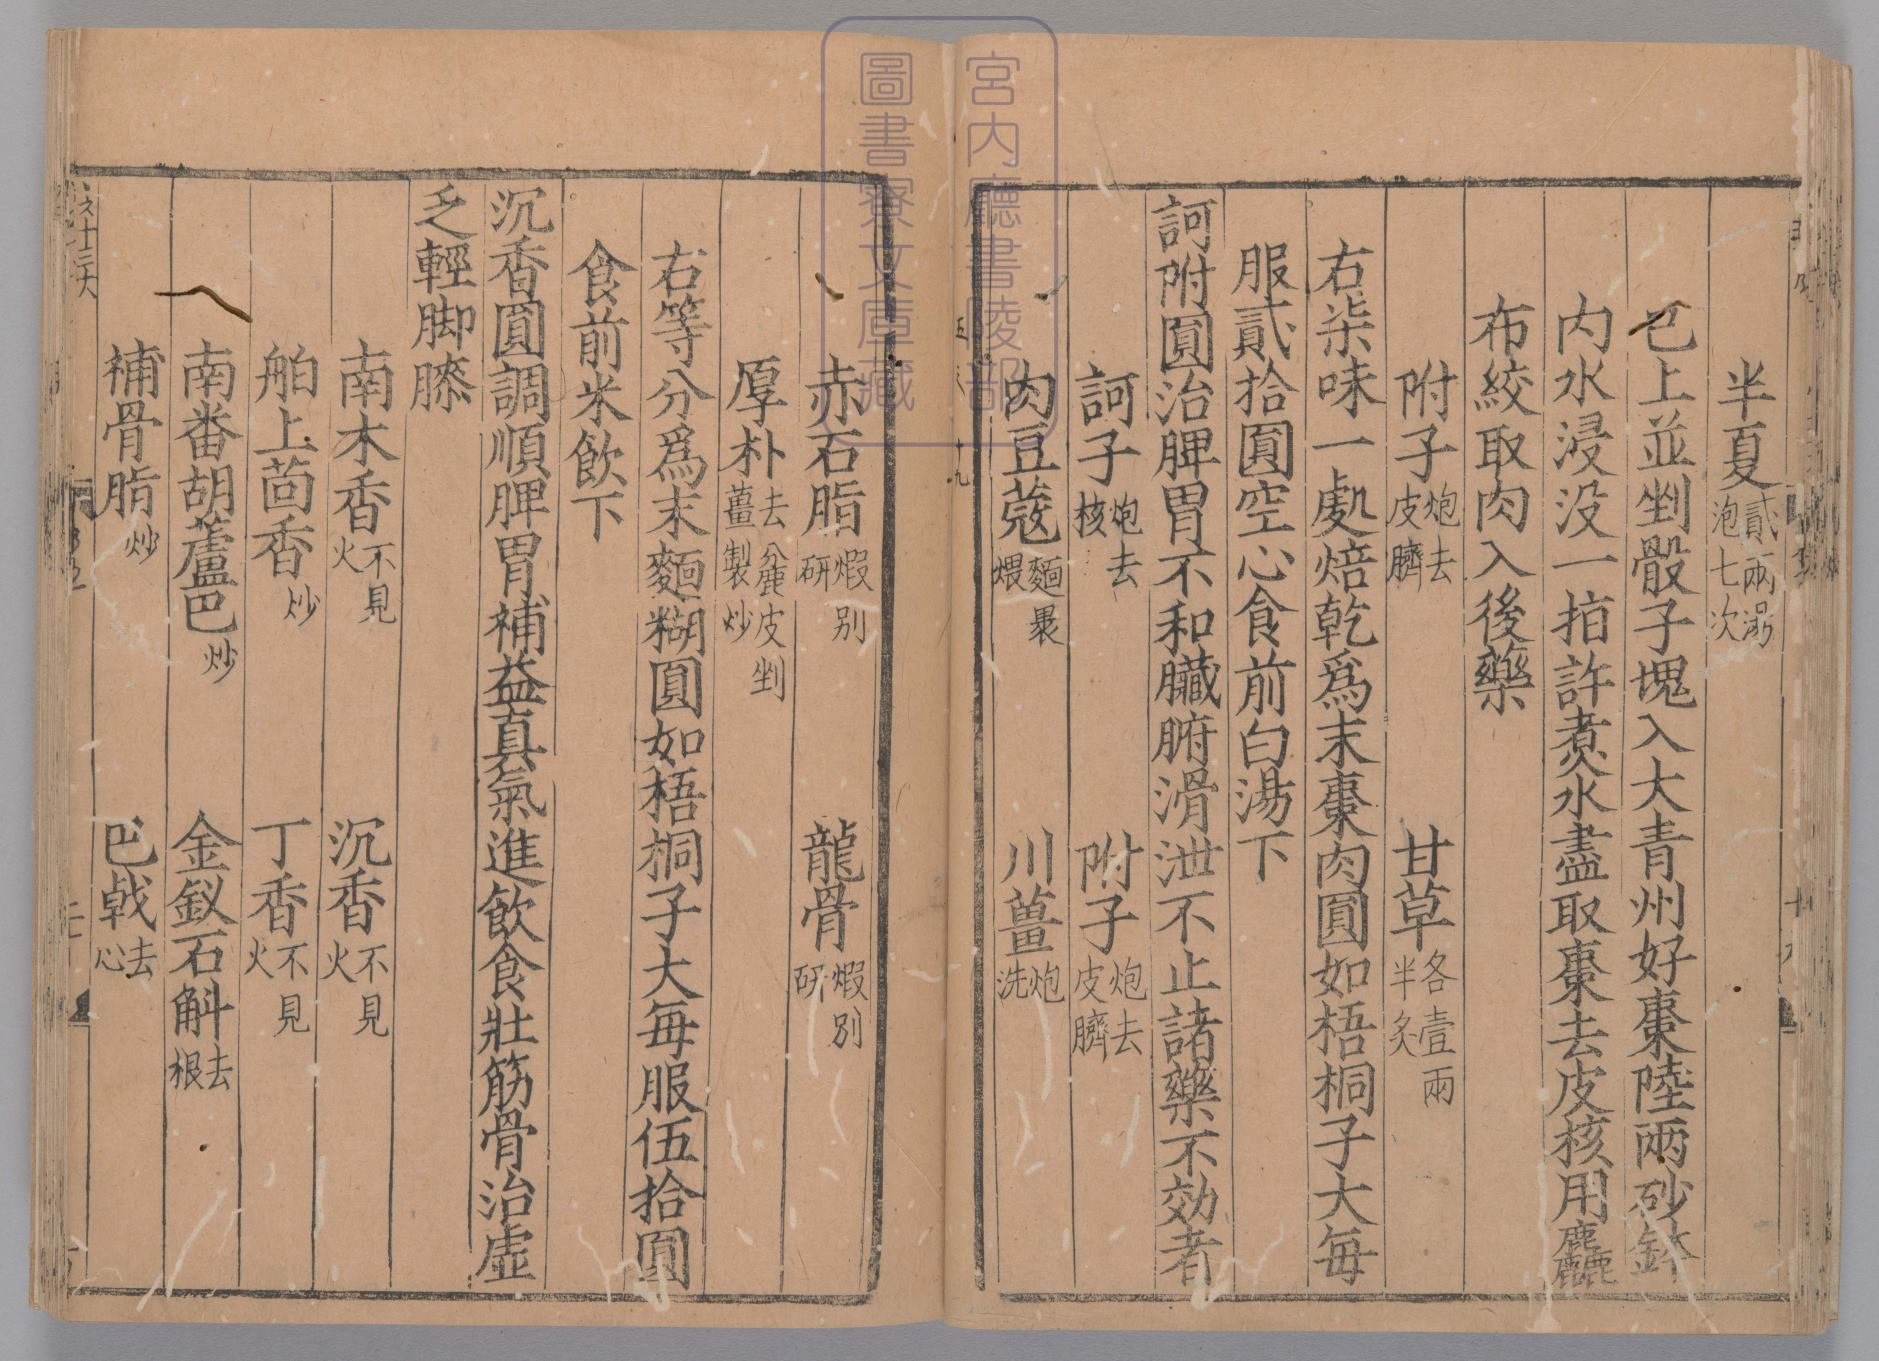 半夏貳兩湯泡七次
已上並剉骰子塊入大青州好棗陸兩砂鉢
内水浸没一指許煑水盡取棗去皮核用麤
布絞取肉入後藥
附子炮去皮臍 甘草各壹兩半炙
右柒味一處焙乾爲末棗肉圓如梧桐子大每
服貳拾圓空心食前白湯下
訶附圓治脾胃不和臟腑滑泄不止諸藥不効者
訶子炮去核 附子炮去皮臍
肉豆蔻麵裹煨 川薑炮洗
赤石脂煆別研 龍骨煆別研
厚朴去麤皮剉薑製炒
右等分爲末麵糊圓如梧桐子大每服伍拾圓
食前米飲下
沉香圓調順脾胃補益真氣進飲食壯筋骨治虛
乏輕脚膝
南木香不見火 沉香不見火
舶上茴香炒 丁香不見火
南番胡蘆巴炒 金釵石斛去根
補骨脂炒 巴戟去心
宮内廳書陵部
圖書寮文庫藏